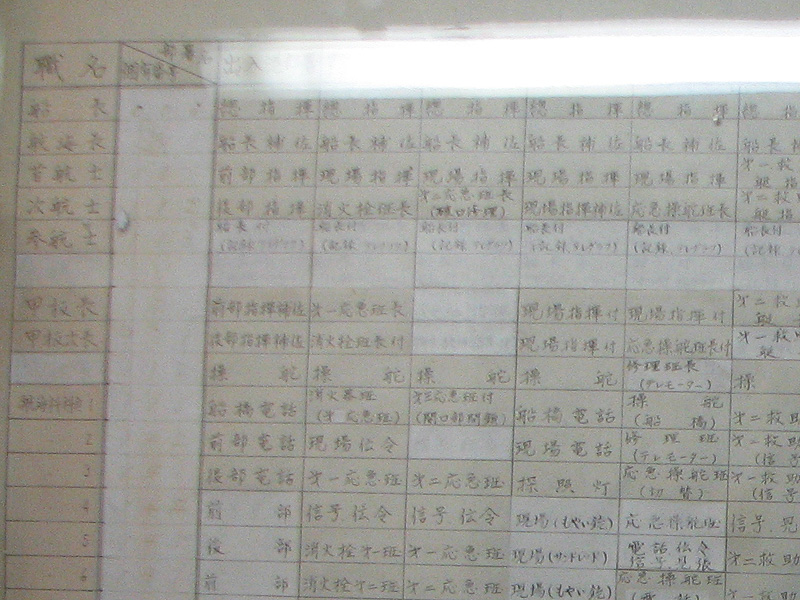 職名 部署名 出入
船長 総指揮 総指揮 総指揮 総指揮 総指揮 総指
航海長 船長補佐 船長補佐 船長補佐 船長補佐 船長補佐 船長補
首航士 前部指揮 現場指揮 現場指揮 現場指揮 現場指揮 才一救
艇指
次航士 後部指揮 消火栓班長 才二応急班長 現場指揮補佐 応急操舵班長 才二救
(開口修理) 艇指
参航士 船長付 船長付 船長付 船長付 船長付 船長付
(記録、テレグラフ) (記録、テレグラフ) (記録、テレグラフ) (記録、テレグラフ) (記録、テレグラフ) (記録
甲板長 前部指揮補佐 才一応急班長 現場指揮付 現場指揮付 才二救
艇
甲板次長 後部指揮補佐 消火栓班長付 現場指揮付 応急操舵班長付 才一救
艇
操舵 操舵 操舵 操舵 修理班長 操
(テレモーター)
1 船橋電話 消火器班 才二応急班付 船橋電話 操舵 才二救
(才一応急班) (開口部閉鎖) (船橋)
2 前部電話 現場伝令 現場電話 修理班 才二救助
(テレモーター) (信号
3 後部電話 才一応急班 才二応急班 探照灯 応急操舵班 才一救助
(切替) (信号
4 前部 信号伝令 信号伝令 現場(もやい銃) 応急操舵班 信号、見
5 後部 消火栓才一班 才一応急班 現場(サンドレッド) 電話伝令 才二救助
信号見張
6 前部 消火栓才二班 才二応急班 現場(もやい銃) 応急操舵班 才一救助